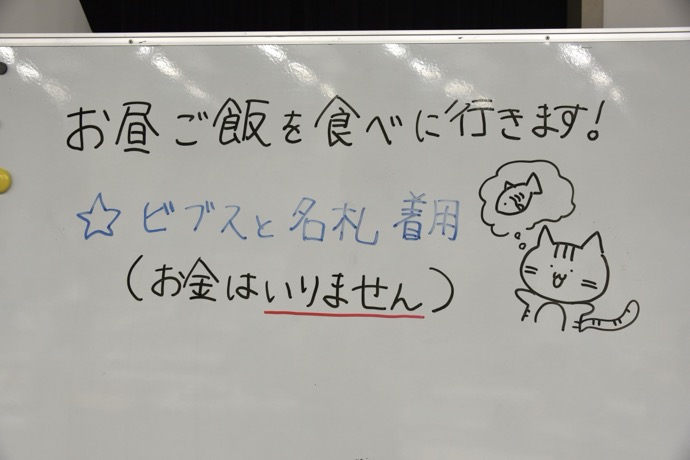 お昼ご飯を食べに行きます!
☆ビブスと名札着用
(お金はいりません)